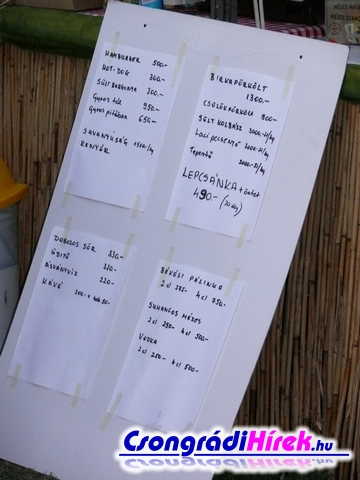 HAMBURGER 500.-
HOT-DOG 300.-
SÜLT BURGONYA 300.-
Gyros tál 950.-
Gyros pitában 650.-
SAVANYÚSÁG 1500/kg
KENYÉR
BIRKAPÖRKÖLT
1300.-
CSÜLÖKPÖRKÖLT 900-
SÜLT KOLBÁSZ 3000.-Ft/kg
Laci pecsenye 3000.-Ft/kg
Tepertő
3000-Ft/kg
LEPCSÁNKA + öntet
490.-
DOBOZOS SÖR 330.-
ÜDITŐ 220.-
ÁSVÁNYVIZ 220.-
KÁVÉ 200.-
BÉKÉSI PÁLINKA
2 cl 375- 4 cl 750-
SUHANCOS MÉZES
2 cl 250- 4 cl 500-
VODKA
2 cl 250- 4 cl 500-
CsongrádiHírek.hu